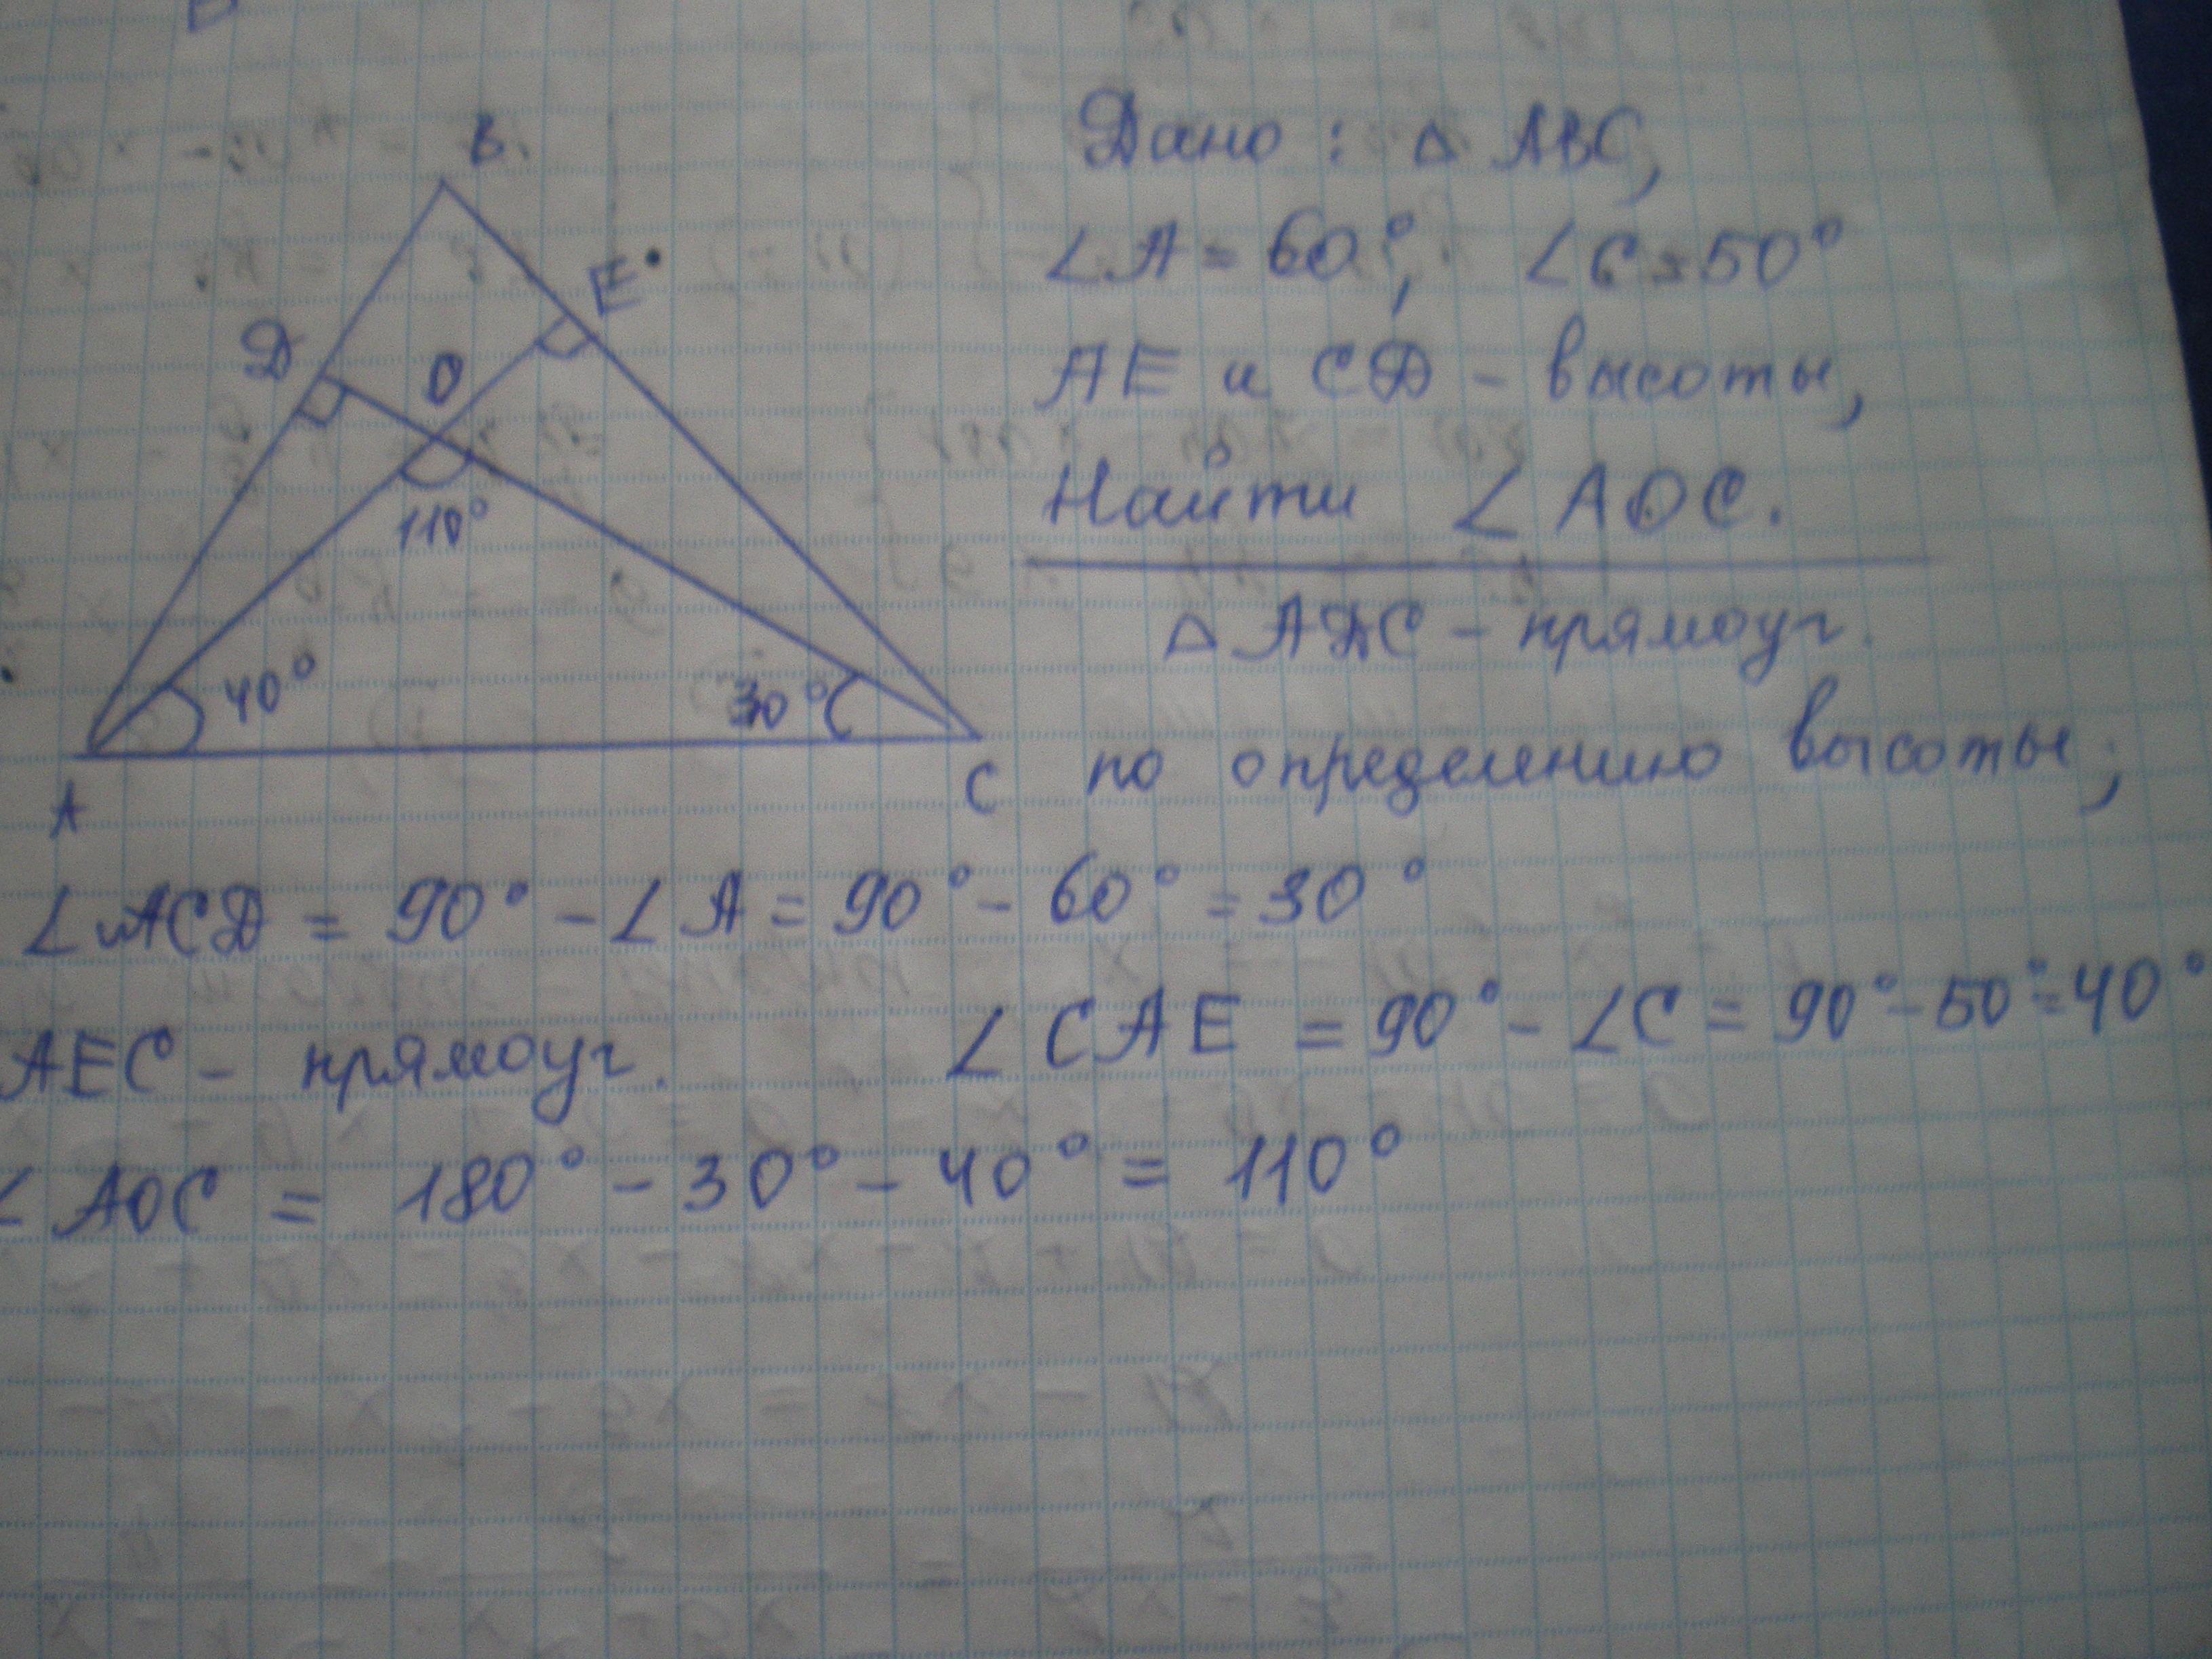 B.
E
Д
O
110°
40°
30°
A
C
Дано: △ ABC,
∠A = 60°, ∠C = 50°
AE и CД - высоты,
Найти ∠ AOC.
△ AДC - прямоуг.
по определению высоты;
∠ ACD = 90° - ∠A = 90° - 60° = 30°
AEC - прямоуг. ∠ CAE = 90° - ∠C = 90° - 50° = 40°
∠ AOC = 180° - 30° - 40° = 110°